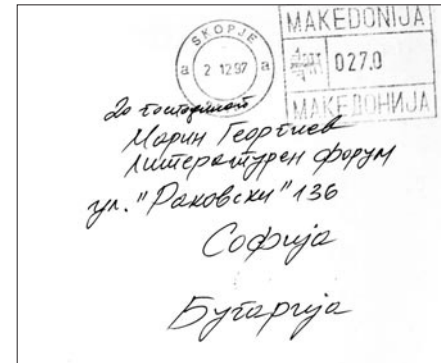 MAKEDONIJA
SKOPJE
a 2 12 97 a
027.0
МАКЕДОНИЈА
До господинот
Марин Георгиев
Литературен форум
ул. "Раковски" 136
Софија
Бугарија